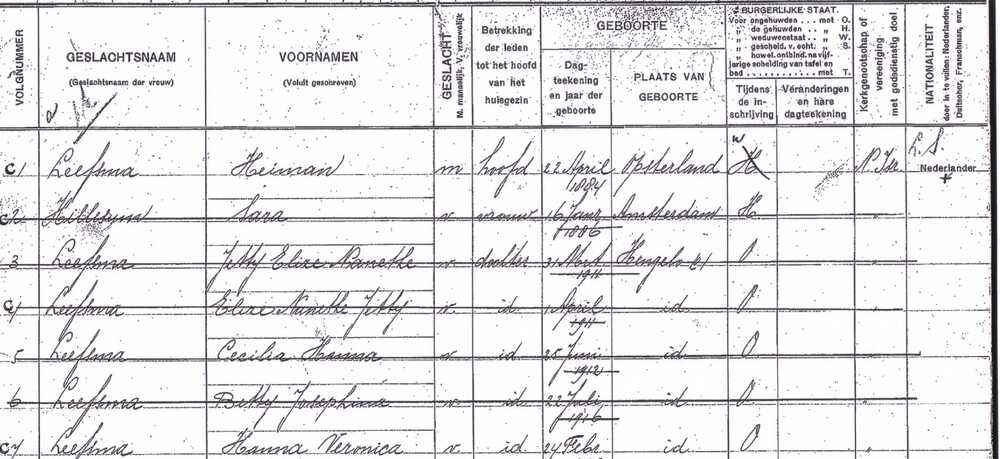 VOLGNUMMER
GESLACHTSNAAM
(Geslachtsnaam der vrouw)
VOORNAMEN
(Voluit geschreven)
GESLACHT
M. mannelijk, V. vrouwelijk
Betrekking
der leden
tot het hoofd
van het
huisgezin
GEBOORTE
Dag-
teekening
en jaar der
geboorte
PLAATS VAN
GEBOORTE
BURGERLIJKE STAAT.
Voor ongehuwden ... met O.
„ de gehuwden ... „ H.
„ weduwenstaat ... „ W.
„ gescheid. v. echt. „ S.
„ huwel. ontbind. na vijf-
jarige scheiding van tafel en
bed ... met T.
Tijdens
de in-
schrijving
Veranderingen
en hare
dagteekening
Kerkgenootschap of
vereeniging
met godsdienstig doel
NATIONALITEIT
door in te vullen: Nederlander,
Duitscher, Franschman, enz.
C1 Leefsma Heiman m hoofd 22 April 1884 Opsterland H w N. Isr. L.S. Nederlander +
C2 Hillesum Sara v vrouw 16 Janr 1886 Amsterdam H „
3 Leefsma Jetty Elize Nanette v dochter 31 Mrt. 1911 Hengelo O „
C4 Leefsma Elize Nanette Jetty v id 1 April 1911 id O „
5 Leefsma Cecilia Hanna v id 25 Juni 1912 id O „
6 Leefsma Betty Josephina v id 22 Juli 1916 id O „
C7 Leefsma Hanna Veronica v. id 24 Febr id O „